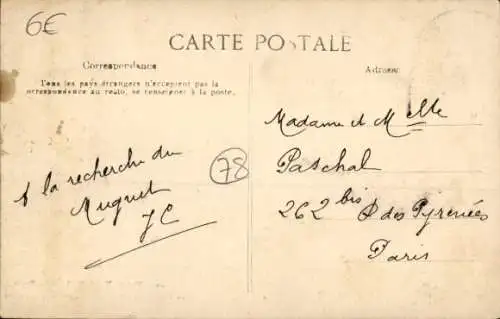 6€
CARTE POSTALE
Correspondance
Tous les pays étrangers n'acceptent pas la
correspondance au recto, se renseigner à la poste.
Adresse
à la recherche du
Muguet
JC
78
Madame et Melle
Paschal
262 bis R des Pyrenées
Paris